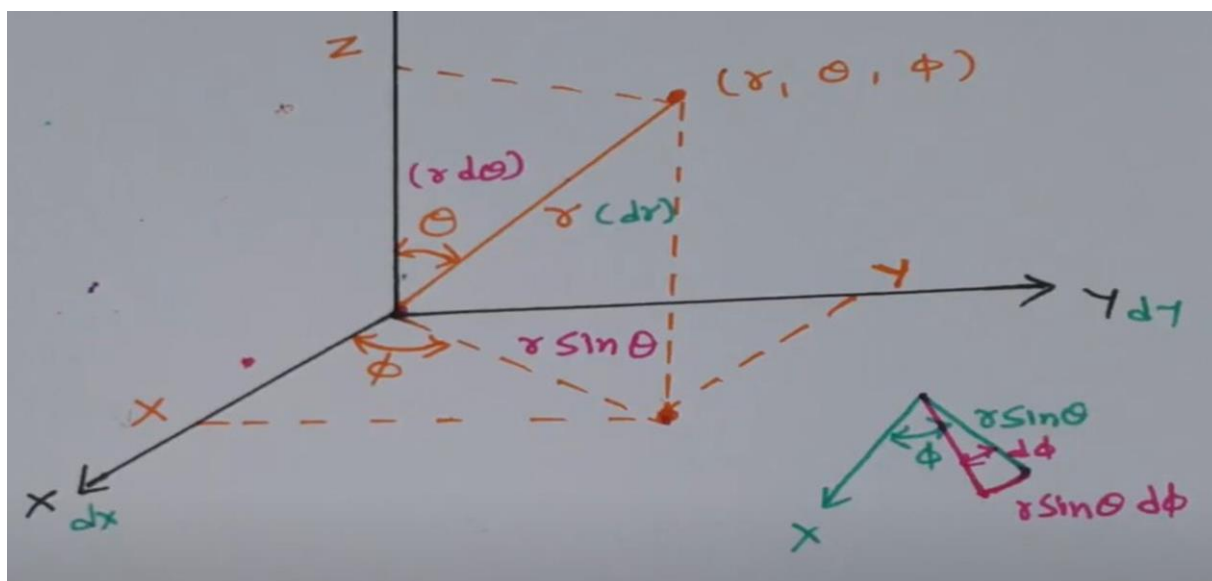 Z
(r, θ, φ)
(r dθ)
θ
r (dr)
Y
Y dy
r sin θ
φ
X
X
dx
r sin θ
φ
dφ
r sin θ dφ
X